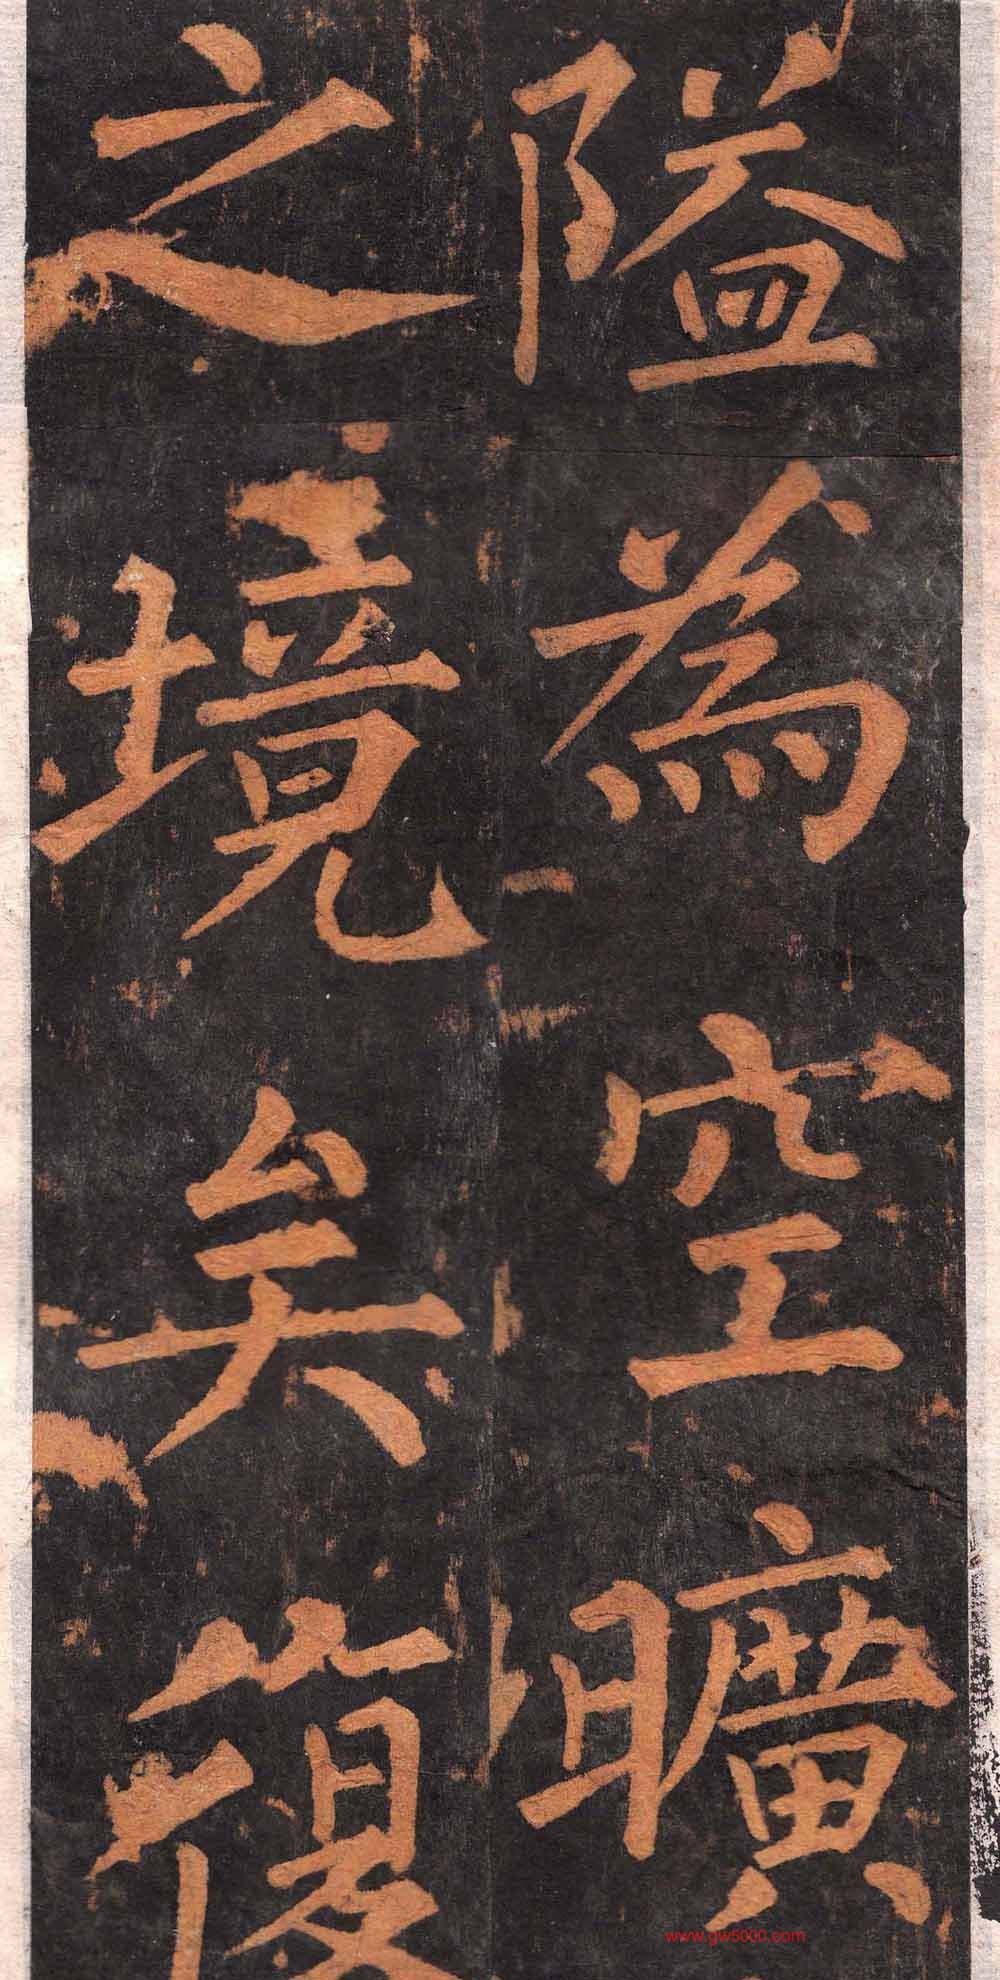 隘為空曠
之境矣復
www.gw5000.com